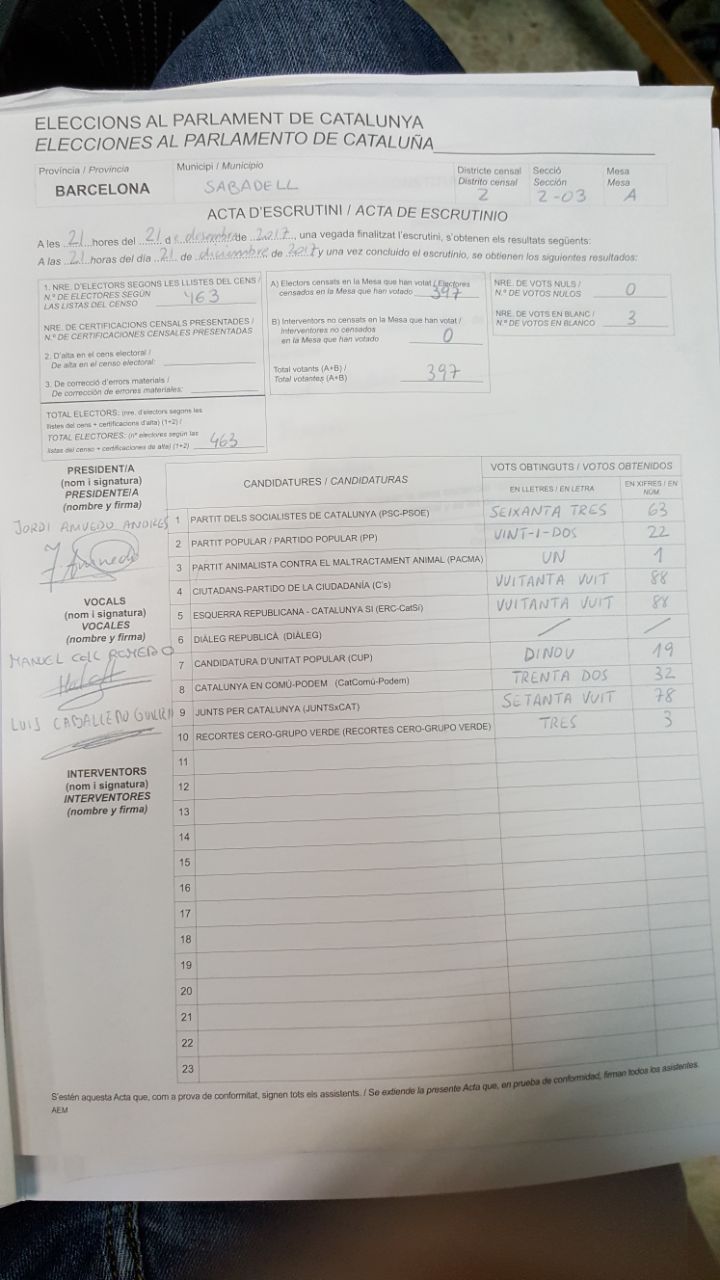 ELECCIONS AL PARLAMENT DE CATALUNYA
ELECCIONES AL PARLAMENTO DE CATALUÑA
Província / Provincia
BARCELONA
Municipi / Municipio
SABADELL
Districte censal
Distrito censal
2
Secció
Sección
2-03
Mesa
Mesa
A
ACTA D'ESCRUTINI / ACTA DE ESCRUTINIO
A les 21 hores del 21 de desembre de 2017, una vegada finalitzat l'escrutini, s'obtenen els resultats següents:
A las 21 horas del día 21 de diciembre de 2017 y una vez concluido el escrutinio, se obtienen los siguientes resultados:
1. NRE. D'ELECTORS SEGONS LES LLISTES DEL CENS /
N.º DE ELECTORES SEGÚN
LAS LISTAS DEL CENSO 463
NRE. DE CERTIFICACIONS CENSALS PRESENTADES /
N.º DE CERTIFICACIONES CENSALES PRESENTADAS
2. D'alta en el cens electoral /
De alta en el censo electoral:
3. De correcció d'errors materials /
De corrección de errores materiales:
TOTAL ELECTORS: (nre. d'electors segons les
llistes del cens + certificacions d'alta) (1+2) /
TOTAL ELECTORES: (nº electores según las
listas del censo + certificaciones de alta) (1+2) 463
A) Electors censats en la Mesa que han votat / Electores
censados en la Mesa que han votado 397
B) Interventors no censats en la Mesa que han votat /
Interventores no censados
en la Mesa que han votado 0
Total votants (A+B) /
Total votantes (A+B) 397
NRE. DE VOTS NULS /
N.º DE VOTOS NULOS 0
NRE. DE VOTS EN BLANC /
N.º DE VOTOS EN BLANCO 3
PRESIDENT/A
(nom i signatura)
PRESIDENTE/A
(nombre y firma)
JORDI AMUEDO ANDRES
VOCALS
(nom i signatura)
VOCALES
(nombre y firma)
MANUEL COLL ROMERO
LUIS CABALLERO
INTERVENTORS
(nom i signatura)
INTERVENTORES
(nombre y firma)
CANDIDATURES / CANDIDATURAS
VOTS OBTINGUTS / VOTOS OBTENIDOS
EN LLETRES / EN LETRA
EN XIFRES / EN NÚM.
1 PARTIT DELS SOCIALISTES DE CATALUNYA (PSC-PSOE) SEIXANTA TRES 63
2 PARTIT POPULAR / PARTIDO POPULAR (PP) VINT-I-DOS 22
3 PARTIT ANIMALISTA CONTRA EL MALTRACTAMENT ANIMAL (PACMA) UN 1
4 CIUTADANS-PARTIDO DE LA CIUDADANÍA (C's) VUITANTA VUIT 88
5 ESQUERRA REPUBLICANA - CATALUNYA SI (ERC-CatSí) VUITANTA VUIT 88
6 DIÀLEG REPUBLICÀ (DIÀLEG) / /
7 CANDIDATURA D'UNITAT POPULAR (CUP) DINOU 19
8 CATALUNYA EN COMÚ-PODEM (CatComú-Podem) TRENTA DOS 32
9 JUNTS PER CATALUNYA (JUNTSxCAT) SETANTA VUIT 78
10 RECORTES CERO-GRUPO VERDE (RECORTES CERO-GRUPO VERDE) TRES 3
11
12
13
14
15
16
17
18
19
20
21
22
23
S'estén aquesta Acta que, com a prova de conformitat, signen tots els assistents. / Se extiende la presente Acta que, en prueba de conformidad, firman todos los asistentes.
AEM